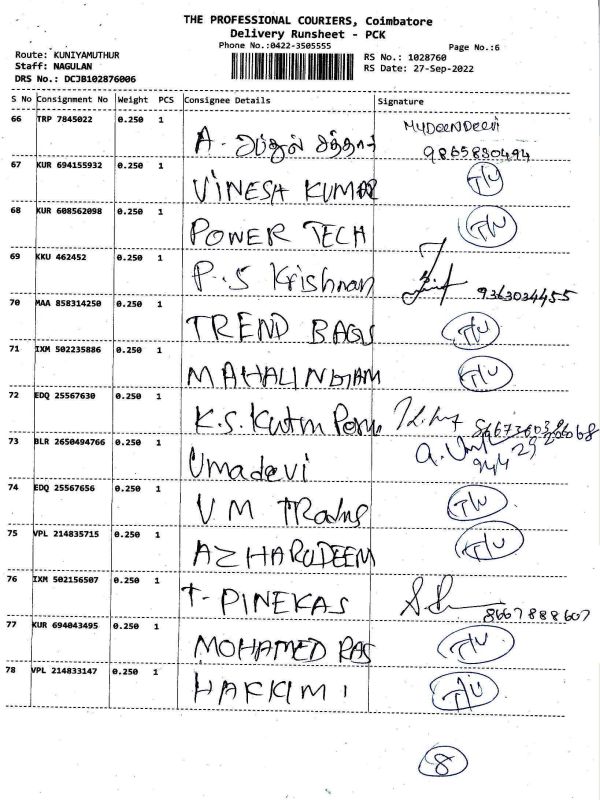 THE PROFESSIONAL COURIERS, Coimbatore
Delivery Runsheet - PCK
Phone No.:0422-3505555
Page No.:6
Route: KUNIYAMUTHUR
RS No.: 1028760
Staff: NAGULAN
RS Date: 27-Sep-2022
DRS No.: DCJB102876006
S No Consignment No Weight PCS Consignee Details Signature
66 TRP 7845022 0.250 1 A. அப்துல் சத்தார் MYDEENDEEVI
9865830494
67 KUR 694155932 0.250 1 VINESH KUMAR T/U
68 KUR 608562098 0.250 1 POWER TECH T/U
69 KKU 462452 0.250 1 P.S Krishnan 9363034455
70 MAA 858314250 0.250 1 TREND BAGS T/U
71 IXM 502235886 0.250 1 MAHALINGAM T/U
72 EDQ 25567630 0.250 1 K.S.
73 BLR 2650494766 0.250 1 Umadevi
74 EDQ 25567656 0.250 1 V M T/U
75 VPL 214835715 0.250 1 AZHARUDEEM T/U
76 IXM 502156507 0.250 1 T- PINEKAS 8667888607
77 KUR 694043495 0.250 1 MOHAMED RAS T/U
78 VPL 214833147 0.250 1 HAKKIM I T/U
8